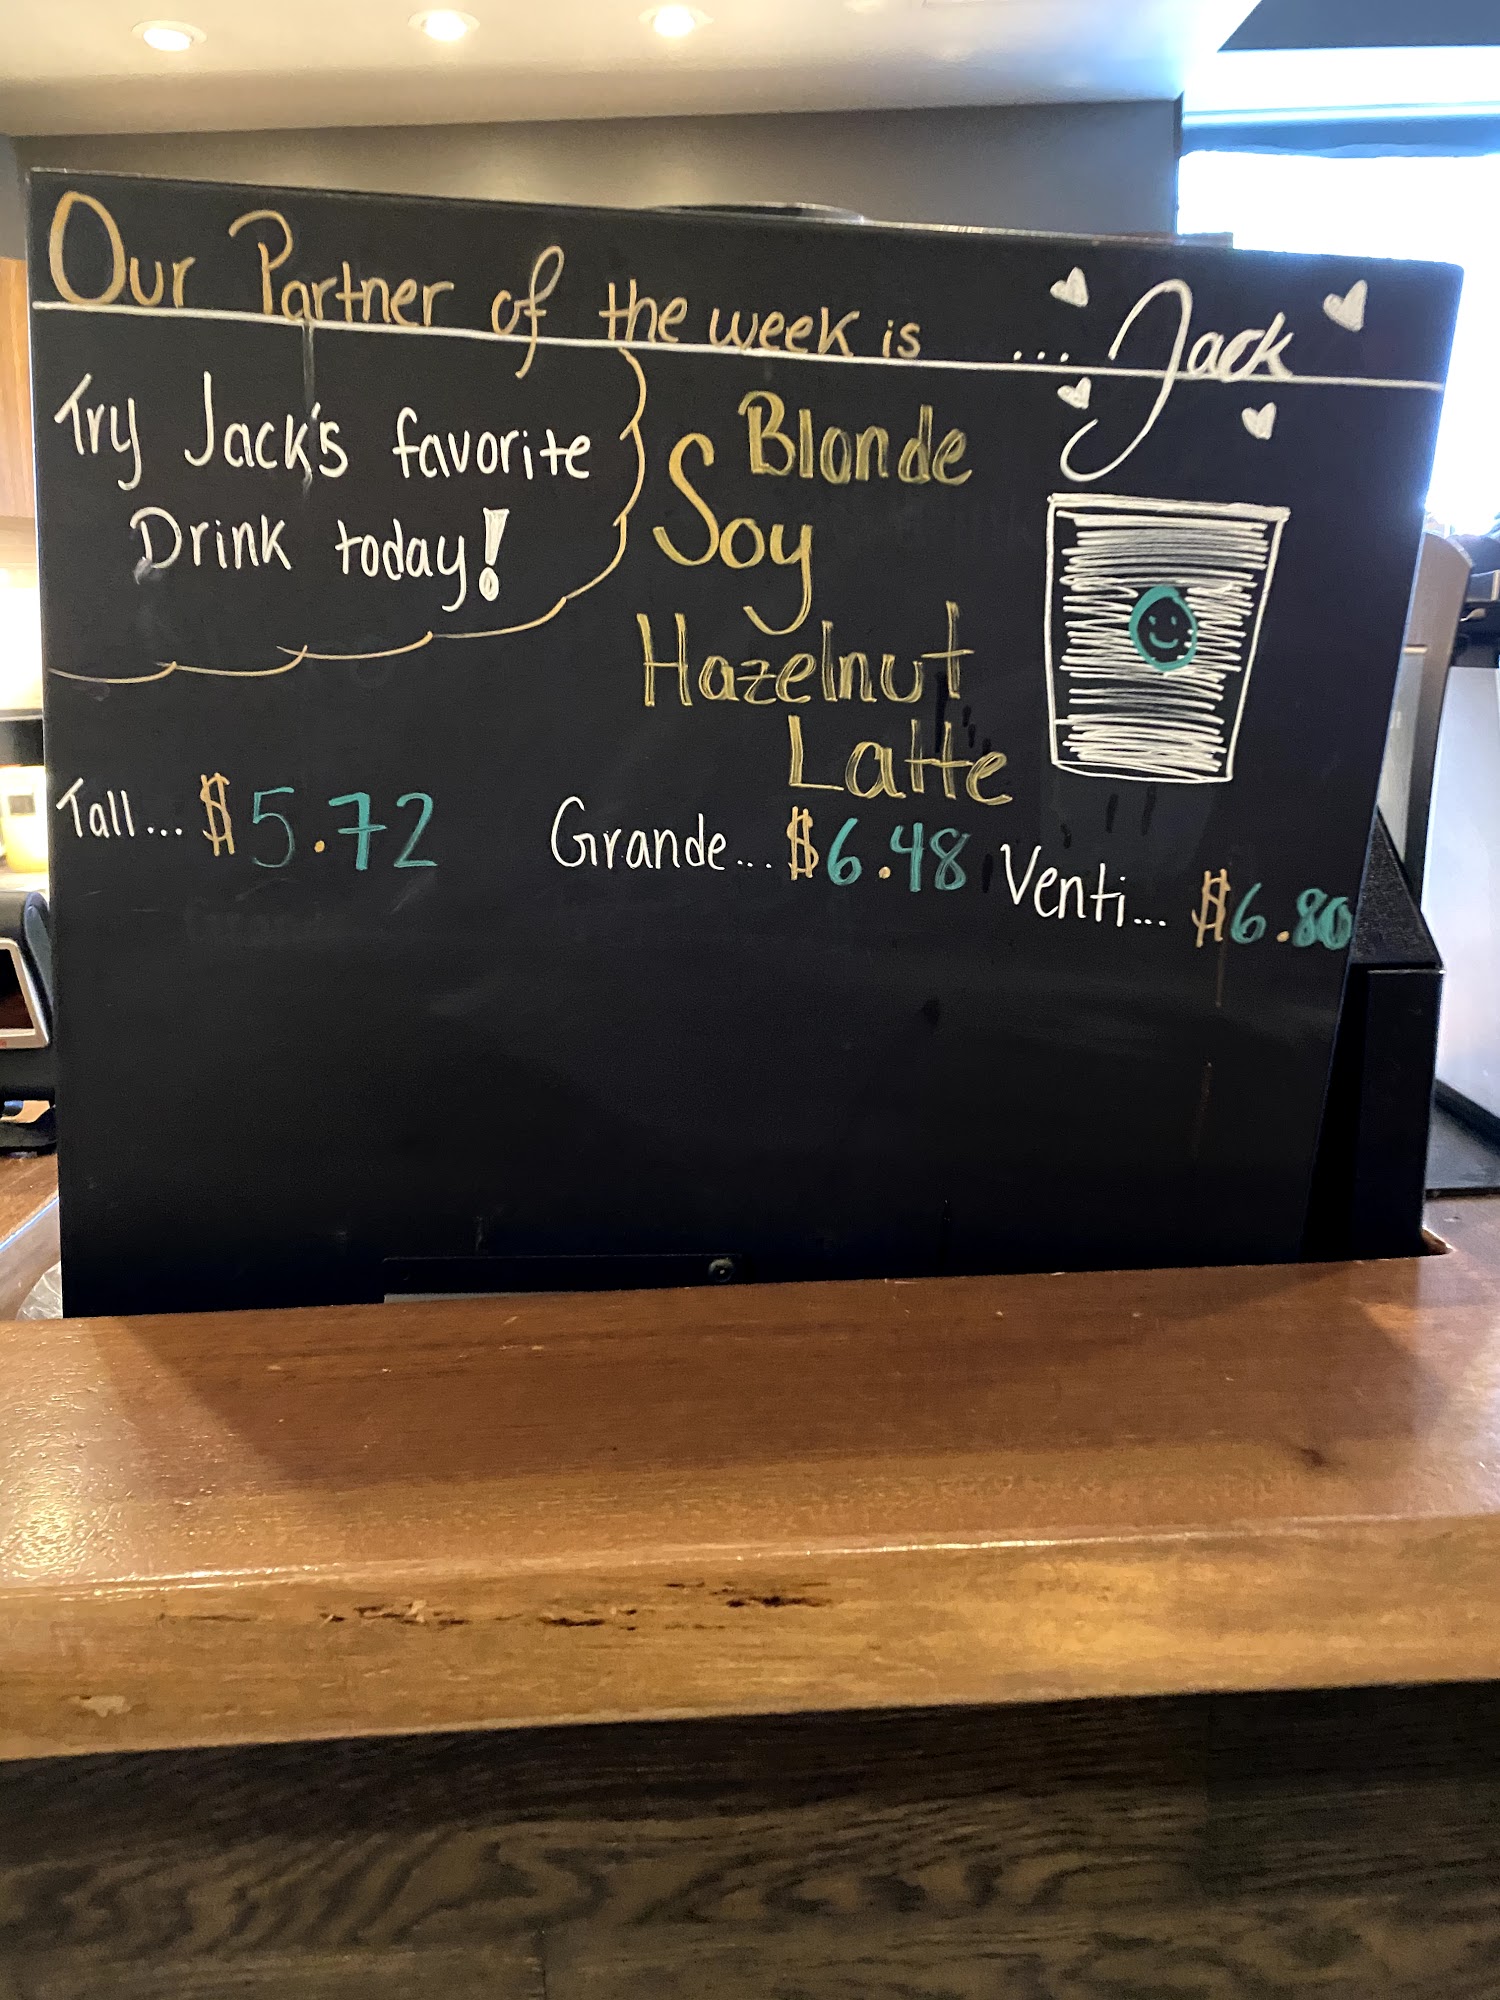 Our Partner of the week is ... Jack
Try Jack's favorite
Drink today!
Blonde
Soy
Hazelnut
Latte
Tall... $5.72
Grande... $6.48
Venti... $6.80